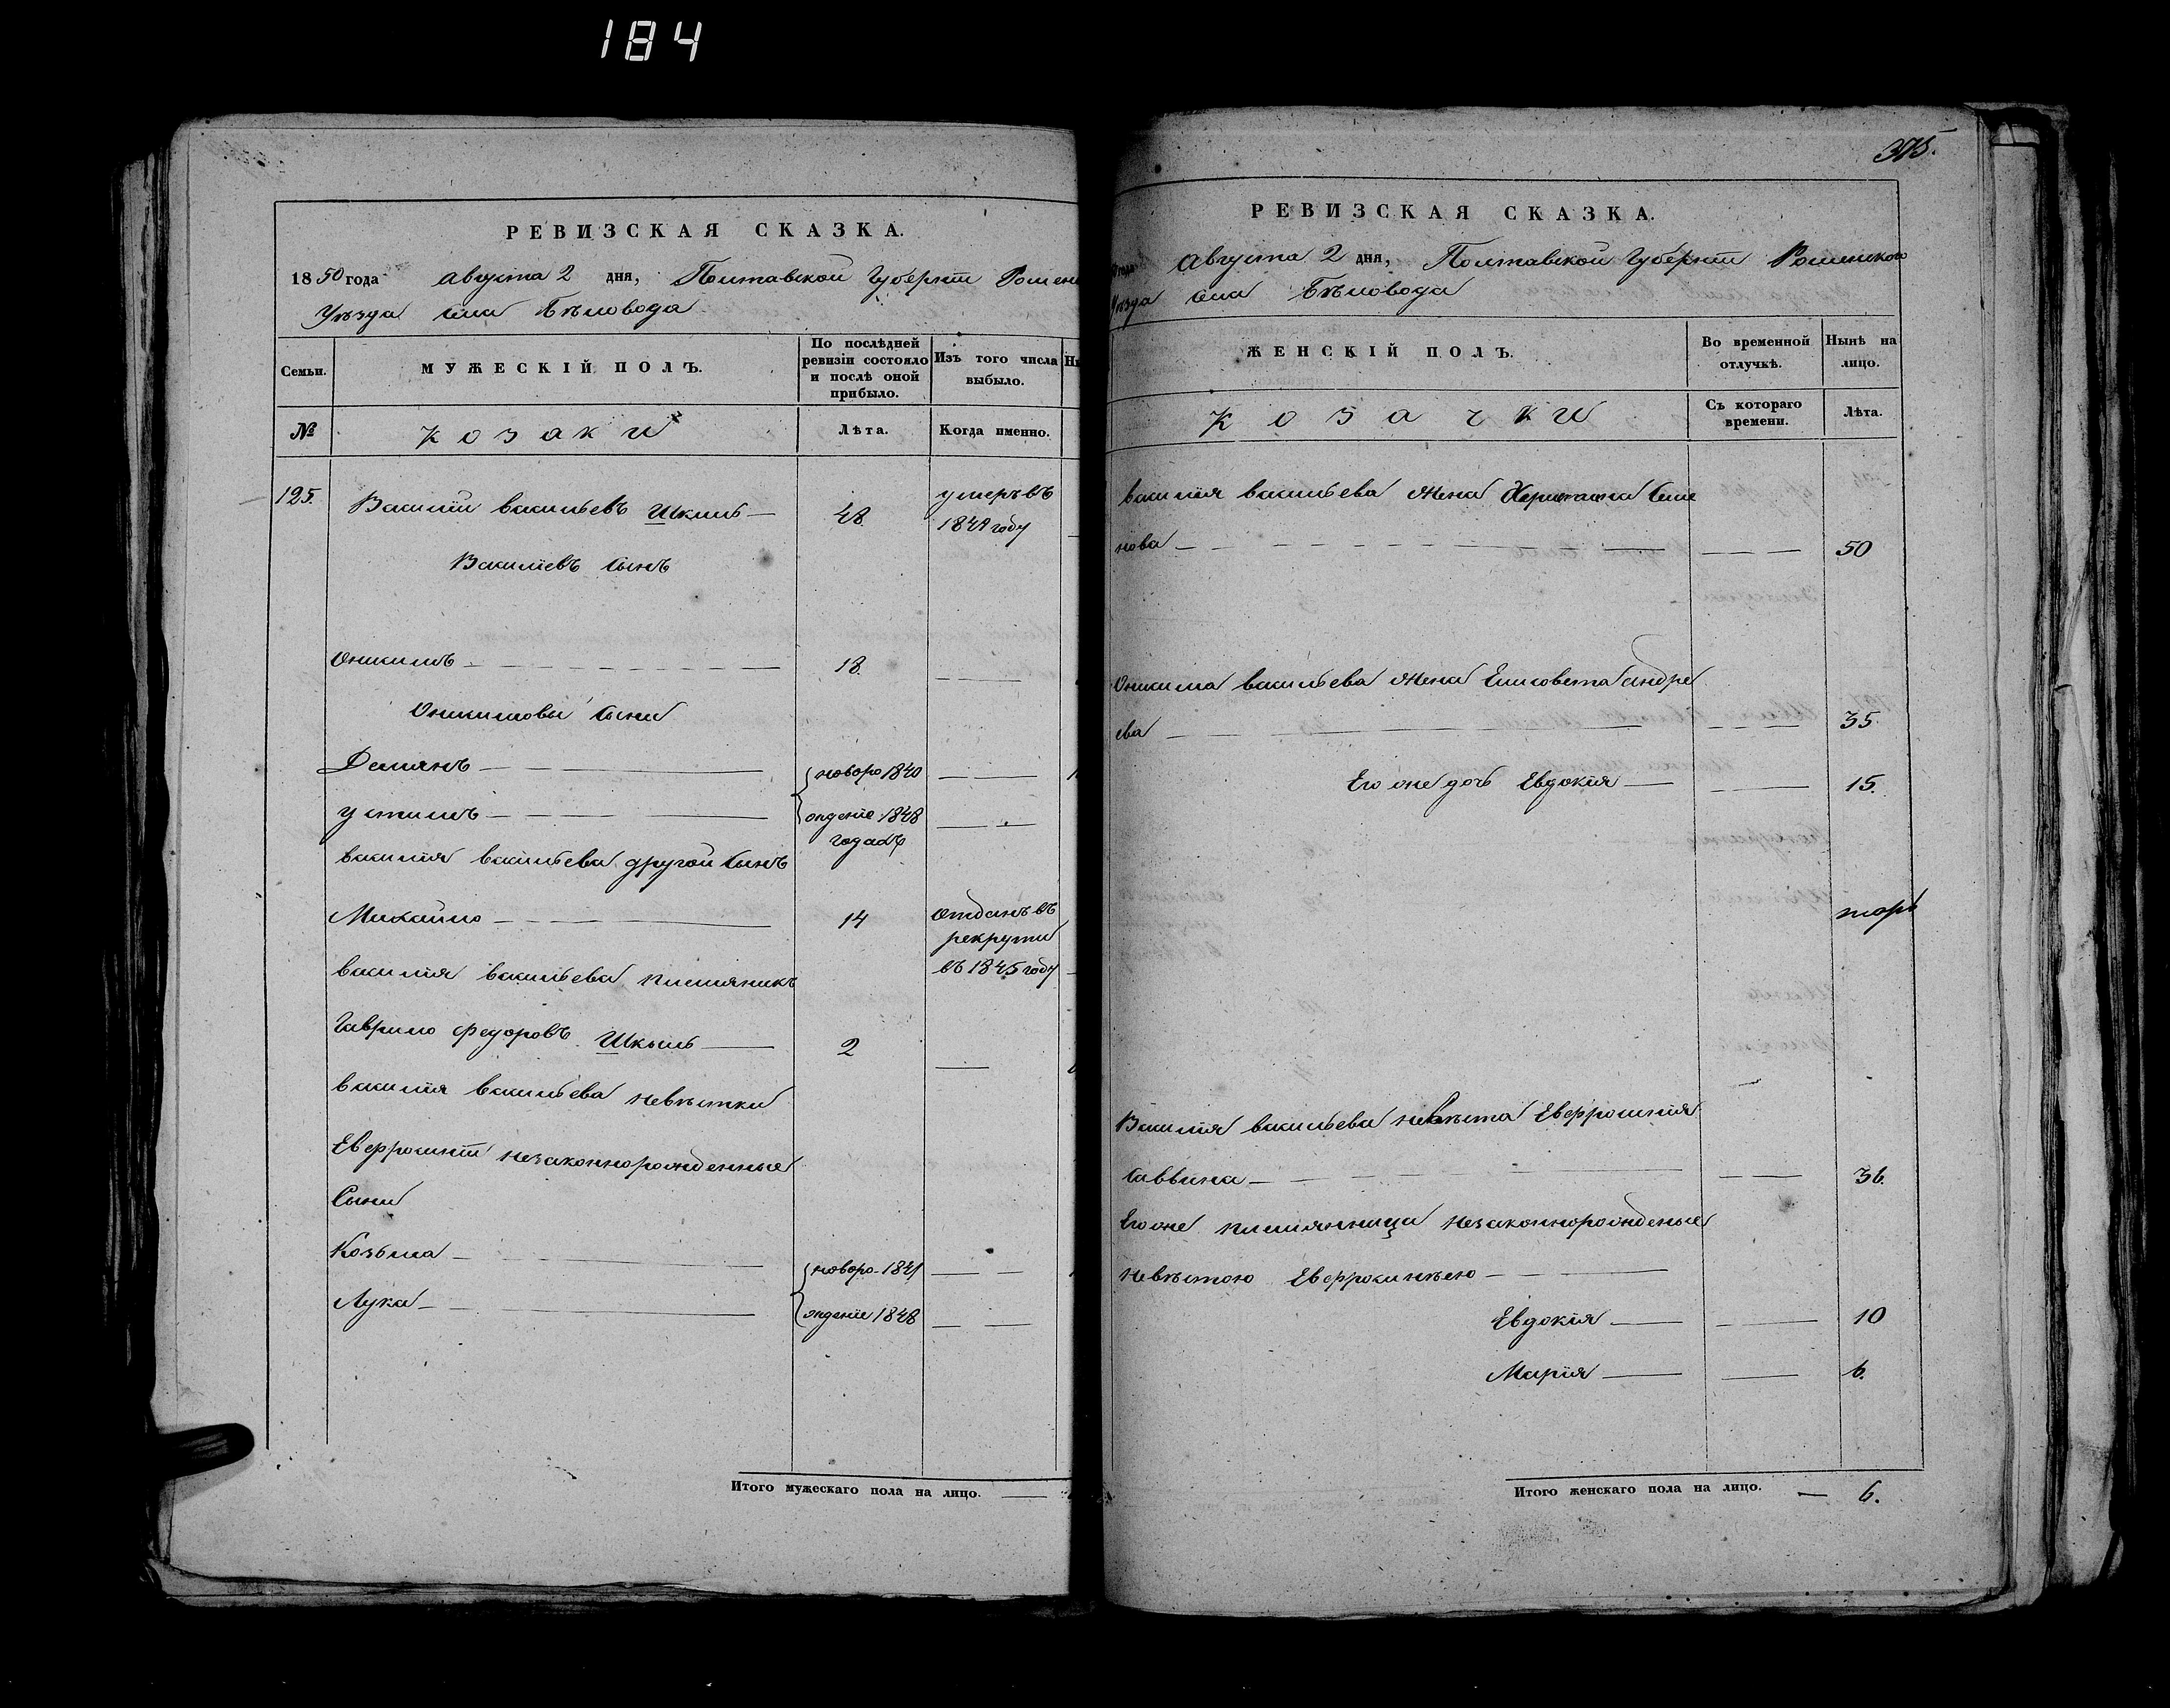 184
РЕВИЗСКАЯ СКАЗКА.
1850 года августа 2 дня, Полтавской Губерніи Ромен
Уѣзда села Бѣловода
Семьи.
МУЖЕСКІЙ ПОЛЪ.
По послѣдней ревизіи состояло и послѣ оной прибыло.
Изъ того числа выбыло.
№
Козаки
Лѣта.
Когда именно.
125. Василій васильевъ Шкиль 48 умеръ въ
1849 году
Василіевъ сынъ
Оникимъ 18.
Оникимовы сыны
Демянъ новоро 1840
Устимъ ждение 1848
годахъ
василія васильева другой сынъ
Михайло 14 отданъ въ
рекруты
въ 1845 году
василія васильева племяникъ
Гаврило федоровъ Шкиль 2
василія васильева невѣстки
Евфросиніи незаконнорожденные
Сыны
Козьма новоро 1841
Лука ждение 1848
Итого мужескаго пола на лицо.
375.
РЕВИЗСКАЯ СКАЗКА.
года августа 2 дня, Полтавской Губерніи Роменского
Уѣзда села Бѣловода
ЖЕНСКІЙ ПОЛЪ.
Во временной отлучкѣ.
Нынѣ на лицо.
Козачки
Съ котораго времени.
Лѣта.
василія васильева жена Семе
нова 50
Оникима васильева жена Елисовета андре
ева 35.
Его же дочь Евдокія 15.
Василія васильева невѣста Евфросинія
саввина 36.
Его же племянница незаконнорожденые
невѣстою Евфросинѣею
Евдокія 10
Марія 6.
Итого женскаго пола на лицо. 6.